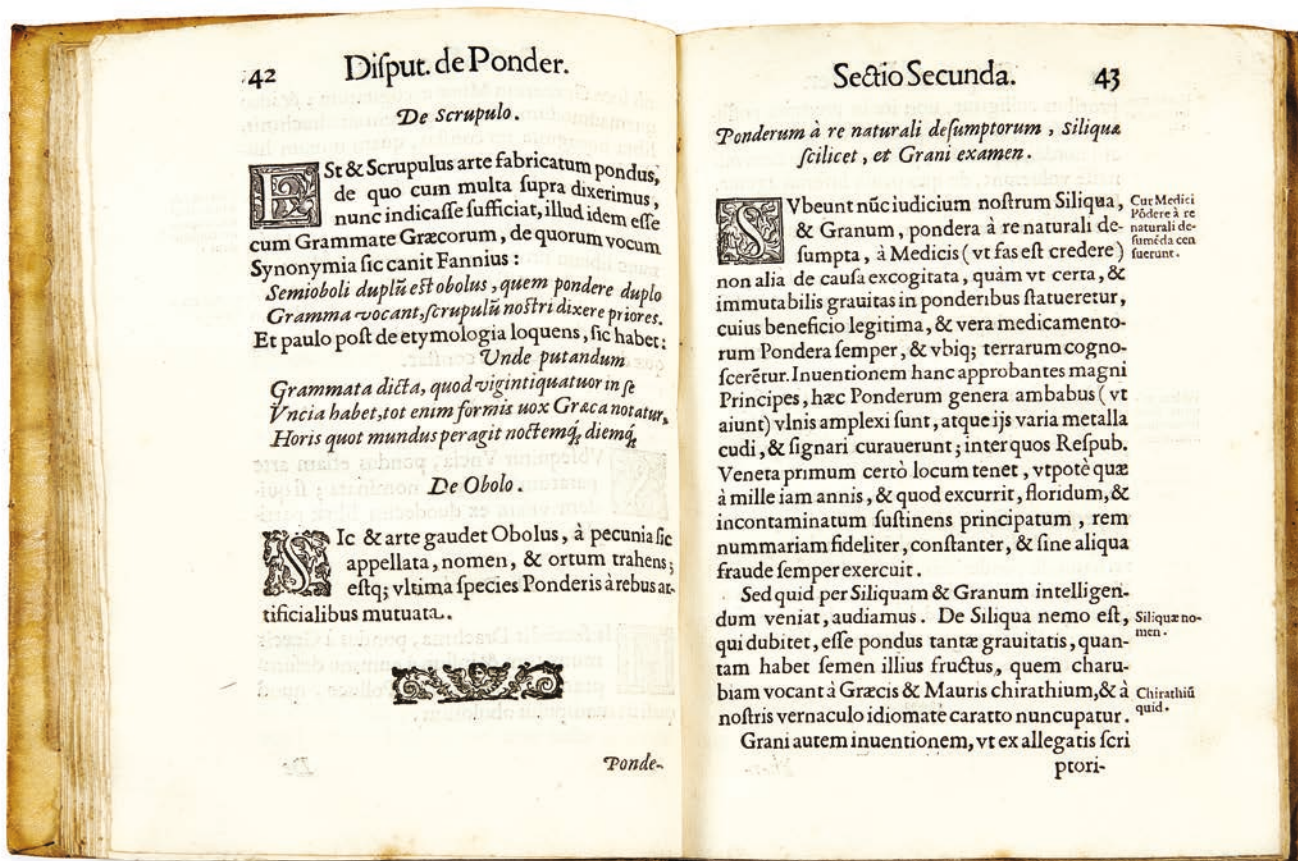 42 Diſput. de Ponder.
De Scrupulo.
ESt & Scrupulus arte fabricatum pondus,
de quo cum multa ſupra dixerimus,
nunc indicaſſe ſufficiat, illud idem eſſe
cum Grammate Græcorum, de quorum vocum
Synonymia ſic canit Fannius:
Semioboli duplũ eſt obolus, quem pondere duplo
Gramma vocant, ſcrupulũ noſtri dixere priores.
Et paulo poſt de etymologia loquens, ſic habet:
Unde putandum
Grammata dicta, quod vigintiquatuor in ſe
Vncia habet, tot enim formis uox Græca notatur,
Horis quot mundus peragit noctemq́; diemq́;
De Obolo.
SIc & arte gaudet Obolus, à pecunia ſic
appellata, nomen, & ortum trahens;
eſtq; vltima ſpecies Ponderis à rebus ar-
tificialibus mutuata.
Ponde-
Sectio Secunda. 43
Ponderum à re naturali deſumptorum, Siliquæ
ſcilicet, et Grani examen.
SVbeunt nũc iudicium noſtrum Siliqua,
& Granum, pondera à re naturali de-
ſumpta, à Medicis (vt fas eſt credere)
non alia de cauſa excogitata, quàm vt certa, &
immutabilis grauitas in ponderibus ſtatueretur,
cuius beneficio legitima, & vera medicamento-
rum Pondera ſemper, & vbiq; terrarum cogno-
ſcerẽtur. Inuentionem hanc approbantes magni
Principes, hæc Ponderum genera ambabus (vt
aiunt) vlnis amplexi ſunt, atque ijs varia metalla
cudi, & ſignari curauerunt; inter quos Reſpub.
Veneta primum certò locum tenet, vtpotè quæ
à mille iam annis, & quod excurrit, floridum, &
incontaminatum ſuſtinens principatum, rem
nummariam fideliter, conſtanter, & ſine aliqua
fraude ſemper exercuit.
Sed quid per Siliquam & Granum intelligen-
dum veniat, audiamus. De Siliqua nemo eſt,
qui dubitet, eſſe pondus tantæ grauitatis, quan-
tam habet ſemen illius fructus, quem charu-
biam vocant à Græcis & Mauris chirathium, & à
noſtris vernaculo idiomate caratto nuncupatur.
Grani autem inuentionem, vt ex allegatis ſcri
ptori-
Cur Medici
Põdere à re
naturali de-
ſumẽda cen
ſuerunt.
Siliquæ no-
men.
Chirathiũ
quid.